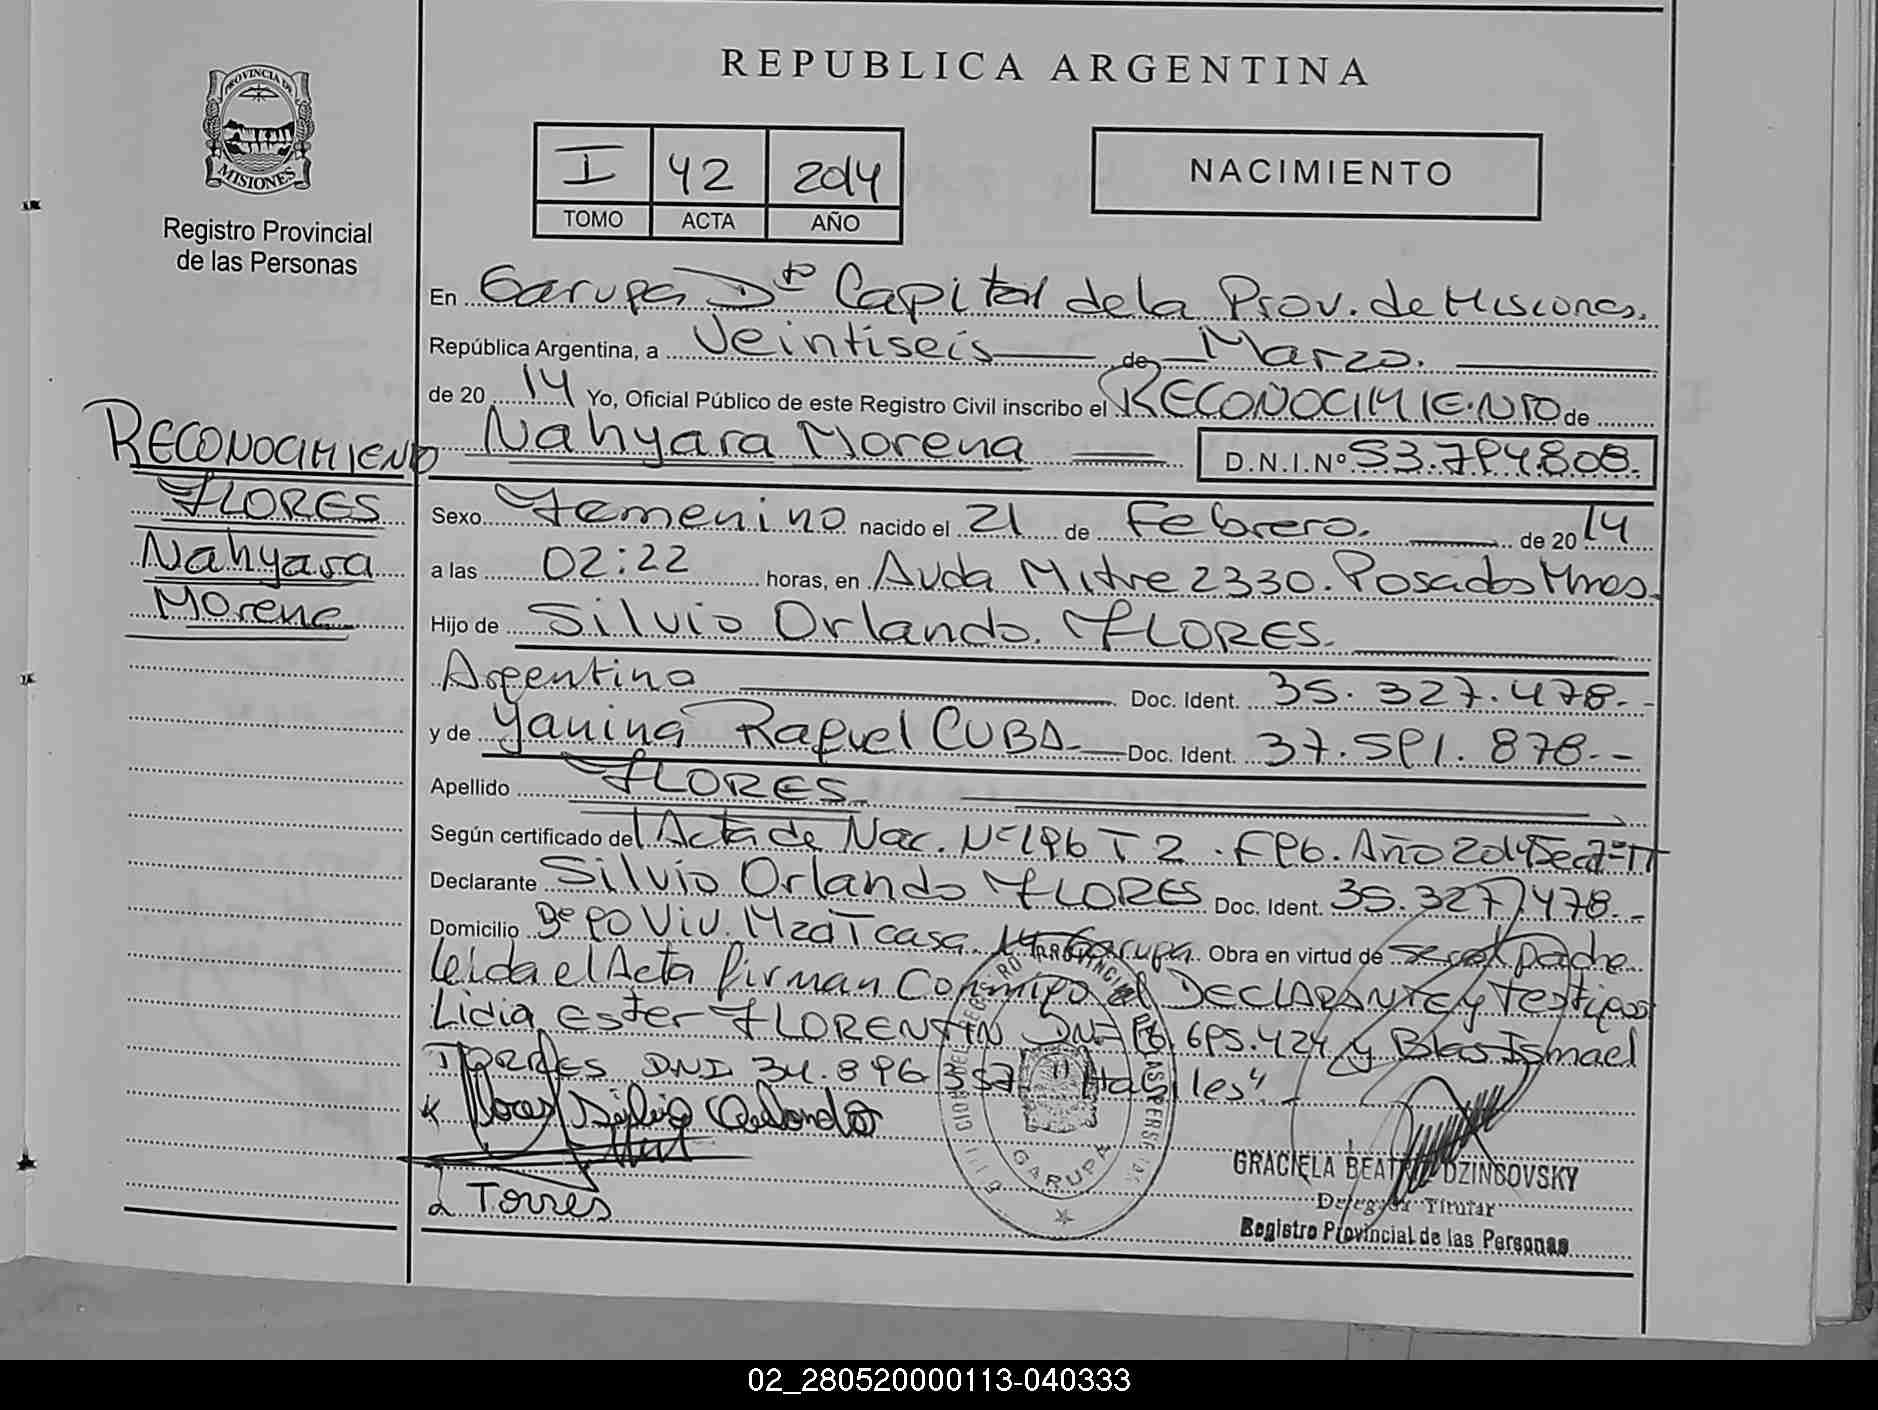 REPUBLICA ARGENTINA
PROVINCIA DE
MISIONES
Registro Provincial
de las Personas
I 42 2014
TOMO ACTA AÑO
NACIMIENTO
En Garupa Dto Capital de la Prov. de Misiones.
República Argentina, a Veintiseis de Marzo.
de 20 14 Yo, Oficial Público de este Registro Civil inscribo el RECONOCIMIENTO de
Nahyara Morena D.N.I.Nº 53.794.808.
RECONOCIMIENTO
FLORES
Nahyara
Morena
Sexo Femenino nacido el 21 de Febrero. de 20 14
a las 02:22 horas, en Avda Mitre 2330. Posadas Mnes.
Hijo de Silvio Orlando. FLORES.
Argentino Doc. Ident. 35.327.478.-
y de Yanina Raquel CUBA Doc. Ident. 37.591.878.-
Apellido FLORES
Según certificado del Acta de Nac. Nº 196 T 2. Fº 96. Año 2014
Declarante Silvio Orlando FLORES Doc. Ident. 35.327.478.-
Domicilio Bº 90 Viv. Mza T casa 14 Garupa. Obra en virtud de ser el padre
leida el Acta firman Conmigo el DECLARANTE y Testigos
Lidia Ester FLORENTIN DNI 695.424 y Blas Ismael
TORRES DNI 34.896.357 "Habiles".-
Flores Silvio Orlando
Torres
GARUPA
GRACIELA BEATRIZ DZINGOVSKY
Delegada Titular
Registro Provincial de las Personas
02_280520000113-040333